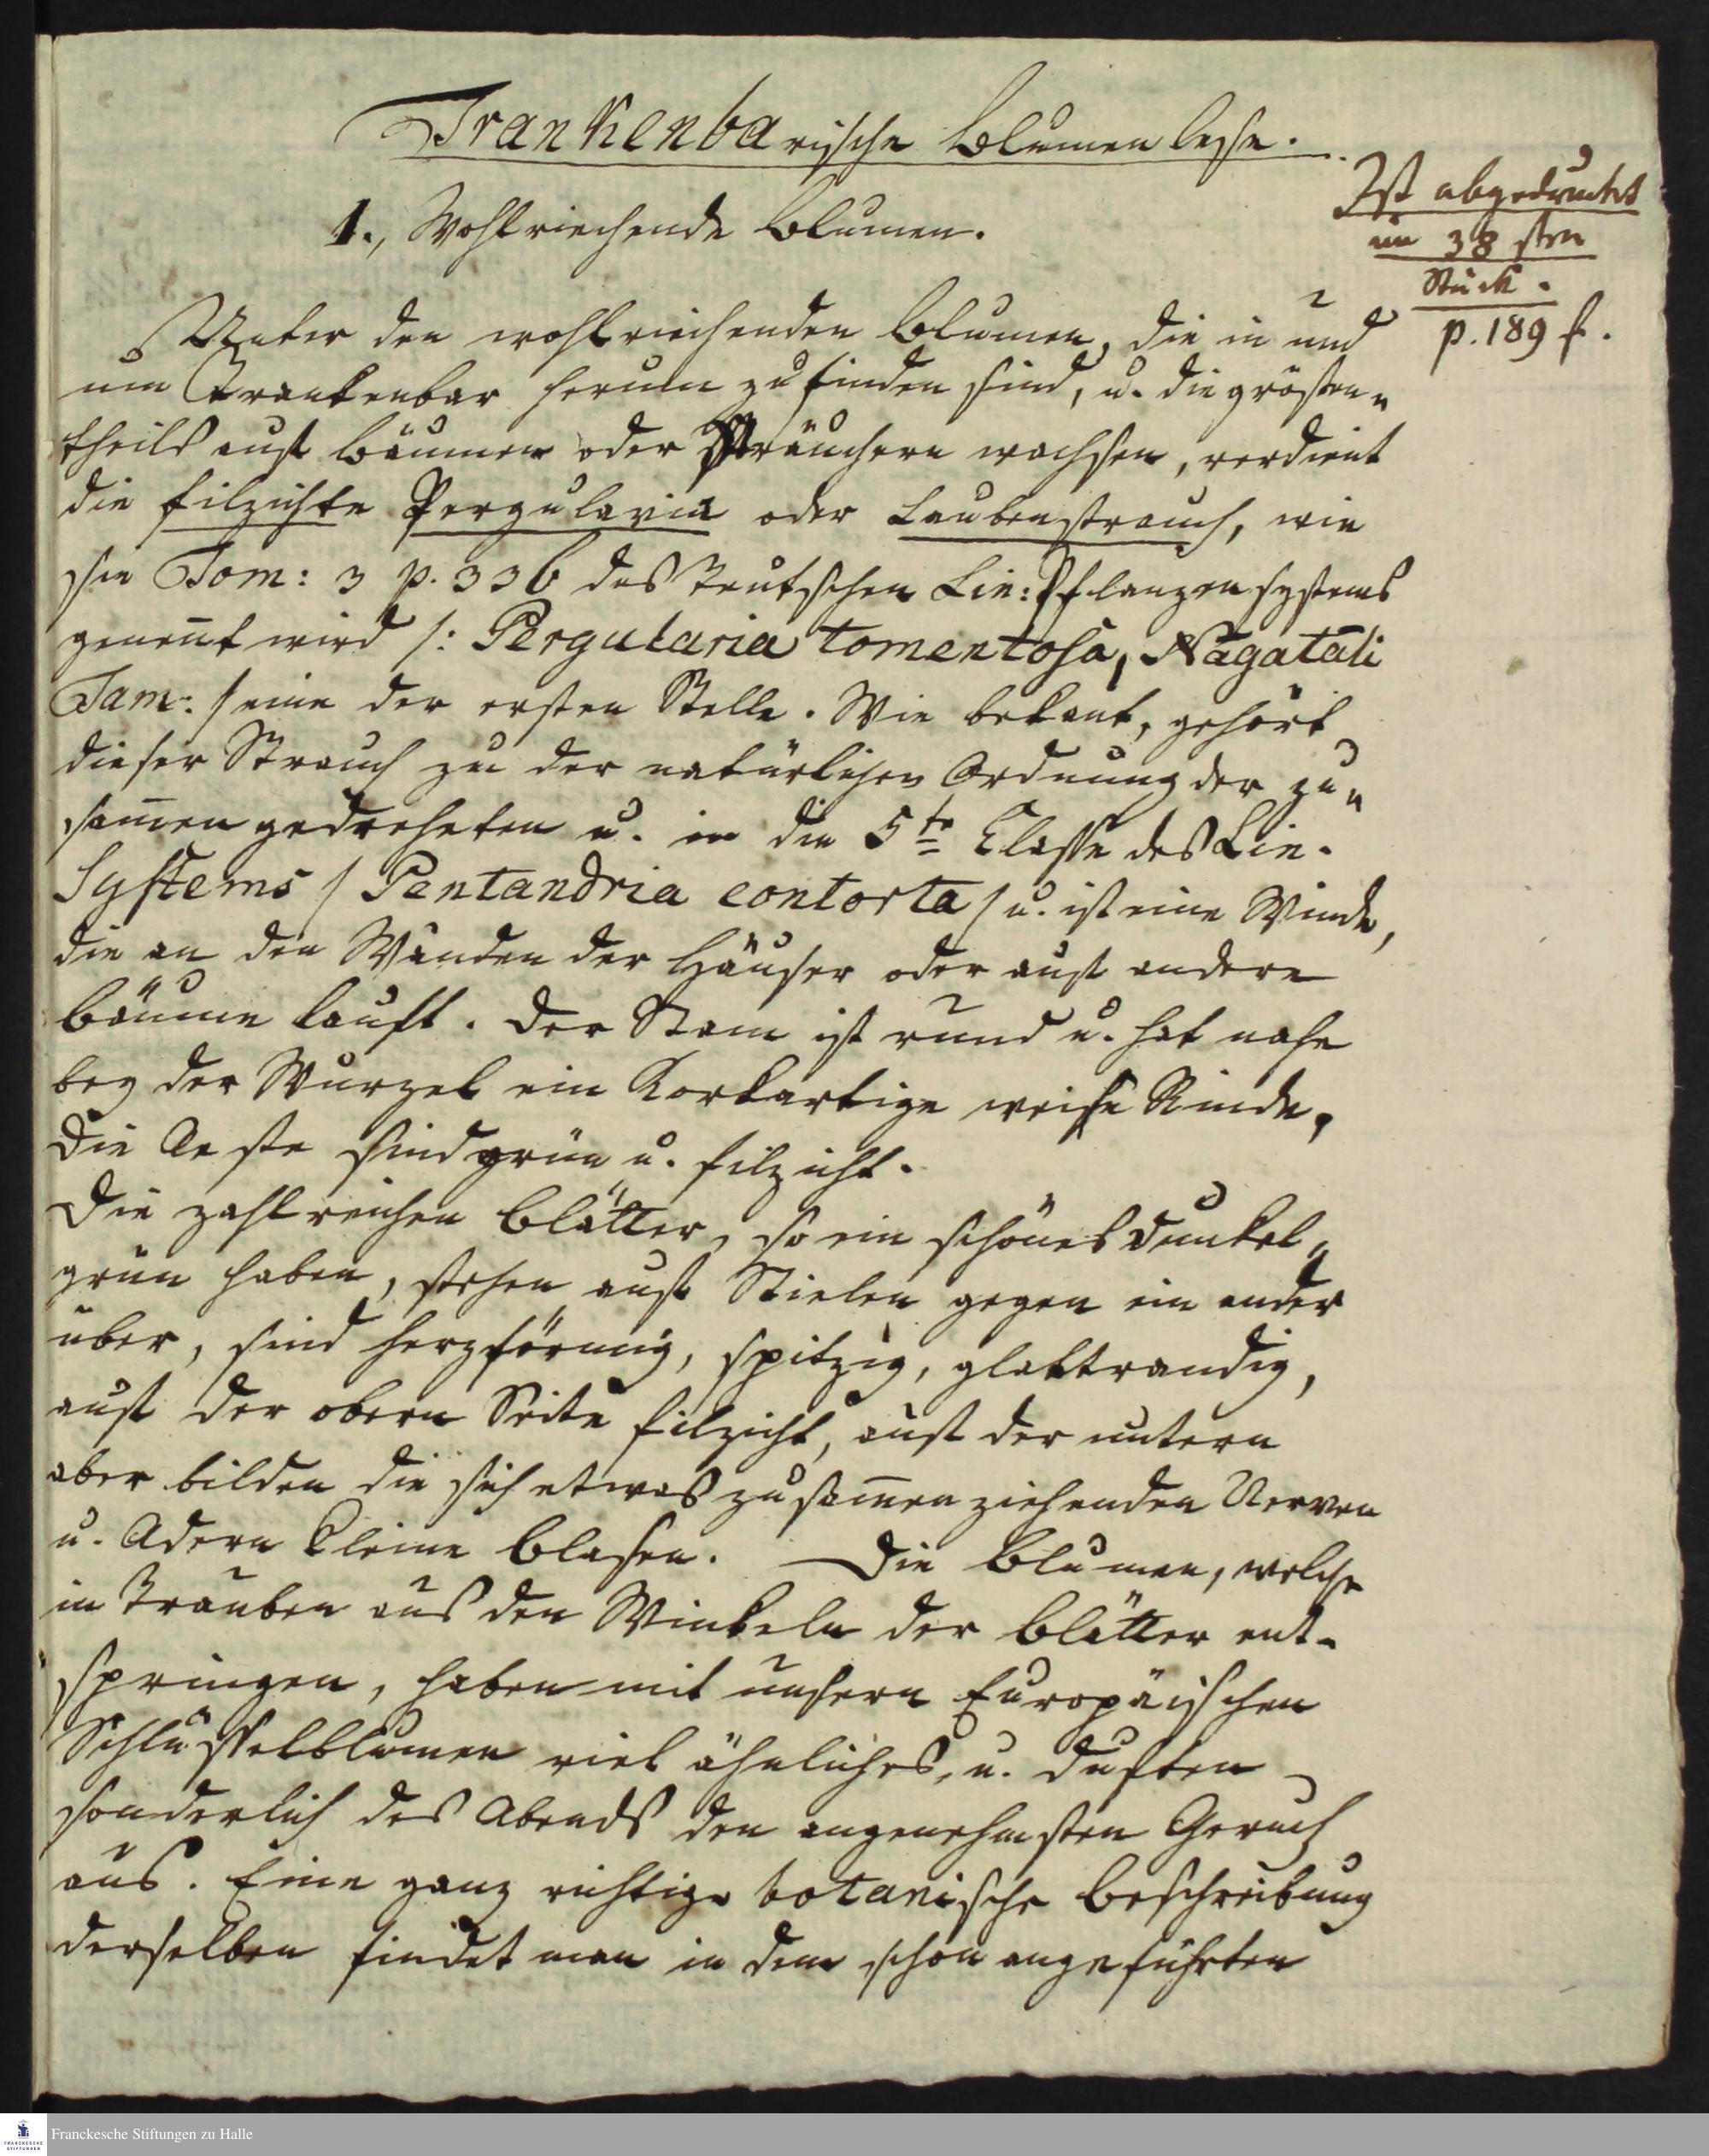 Trankenbarische Blumen lese.
1., Wohlriechende Blumen.
Ist abgedruckt
im 38 sten
Stück.
p. 189 f.
Unter den wohlriechenden Blumen, die in und
um Trankenbar herum zu finden sind, u. die grösten„
theils auf Bäumen oder Sträuchern wachsen, verdient
die filzichte Pergularia oder Laubenstrauch, wie
sie Tom: 3 p. 336 des Teutschen Lin: Pflanzensystems
genent wird /: Pergularia tomentosa, Nāgatāli
Tam: / eine der ersten Stelle. Wie bekant, gehört
dieser Strauch zu der natürlichen Ordnung der zu„
sam̄en gedreheten u. in die 5te Classe des Lin.
Systems / Pentandria contorta / u. ist eine Winde,
die an den Wänden der Häuser oder auf andere
Bäume lauft. Der Stam ist rund u. hat nahe
bey der Wurzel ein Korkartige weisse Rinde,
Die Aeste sind grün u. filzicht.
Die zahlreichen Blätter, so ein schönes dunkel„
grün haben, stehen auf Stielen gegen ein ander
über, sind herzförmig, spitzig, glattrandig,
auf der obern Seite filzicht, auf der untern
aber bilden die sich etwas zusam̄en ziehenden Nerven
u. Adern kleine Blasen. Die Blumen, welche
in Trauben aus den Winkeln der Blätter ent-
springen, haben mit unsern Europäischen
Schlüsselblumen viel ähnliches, u. duften
sonderlich des Abends den angenehmsten Geruch
aus. Eine ganz richtige botanische Beschreibung
derselben findet man in dem schon angeführten
Franckesche Stiftungen zu Halle